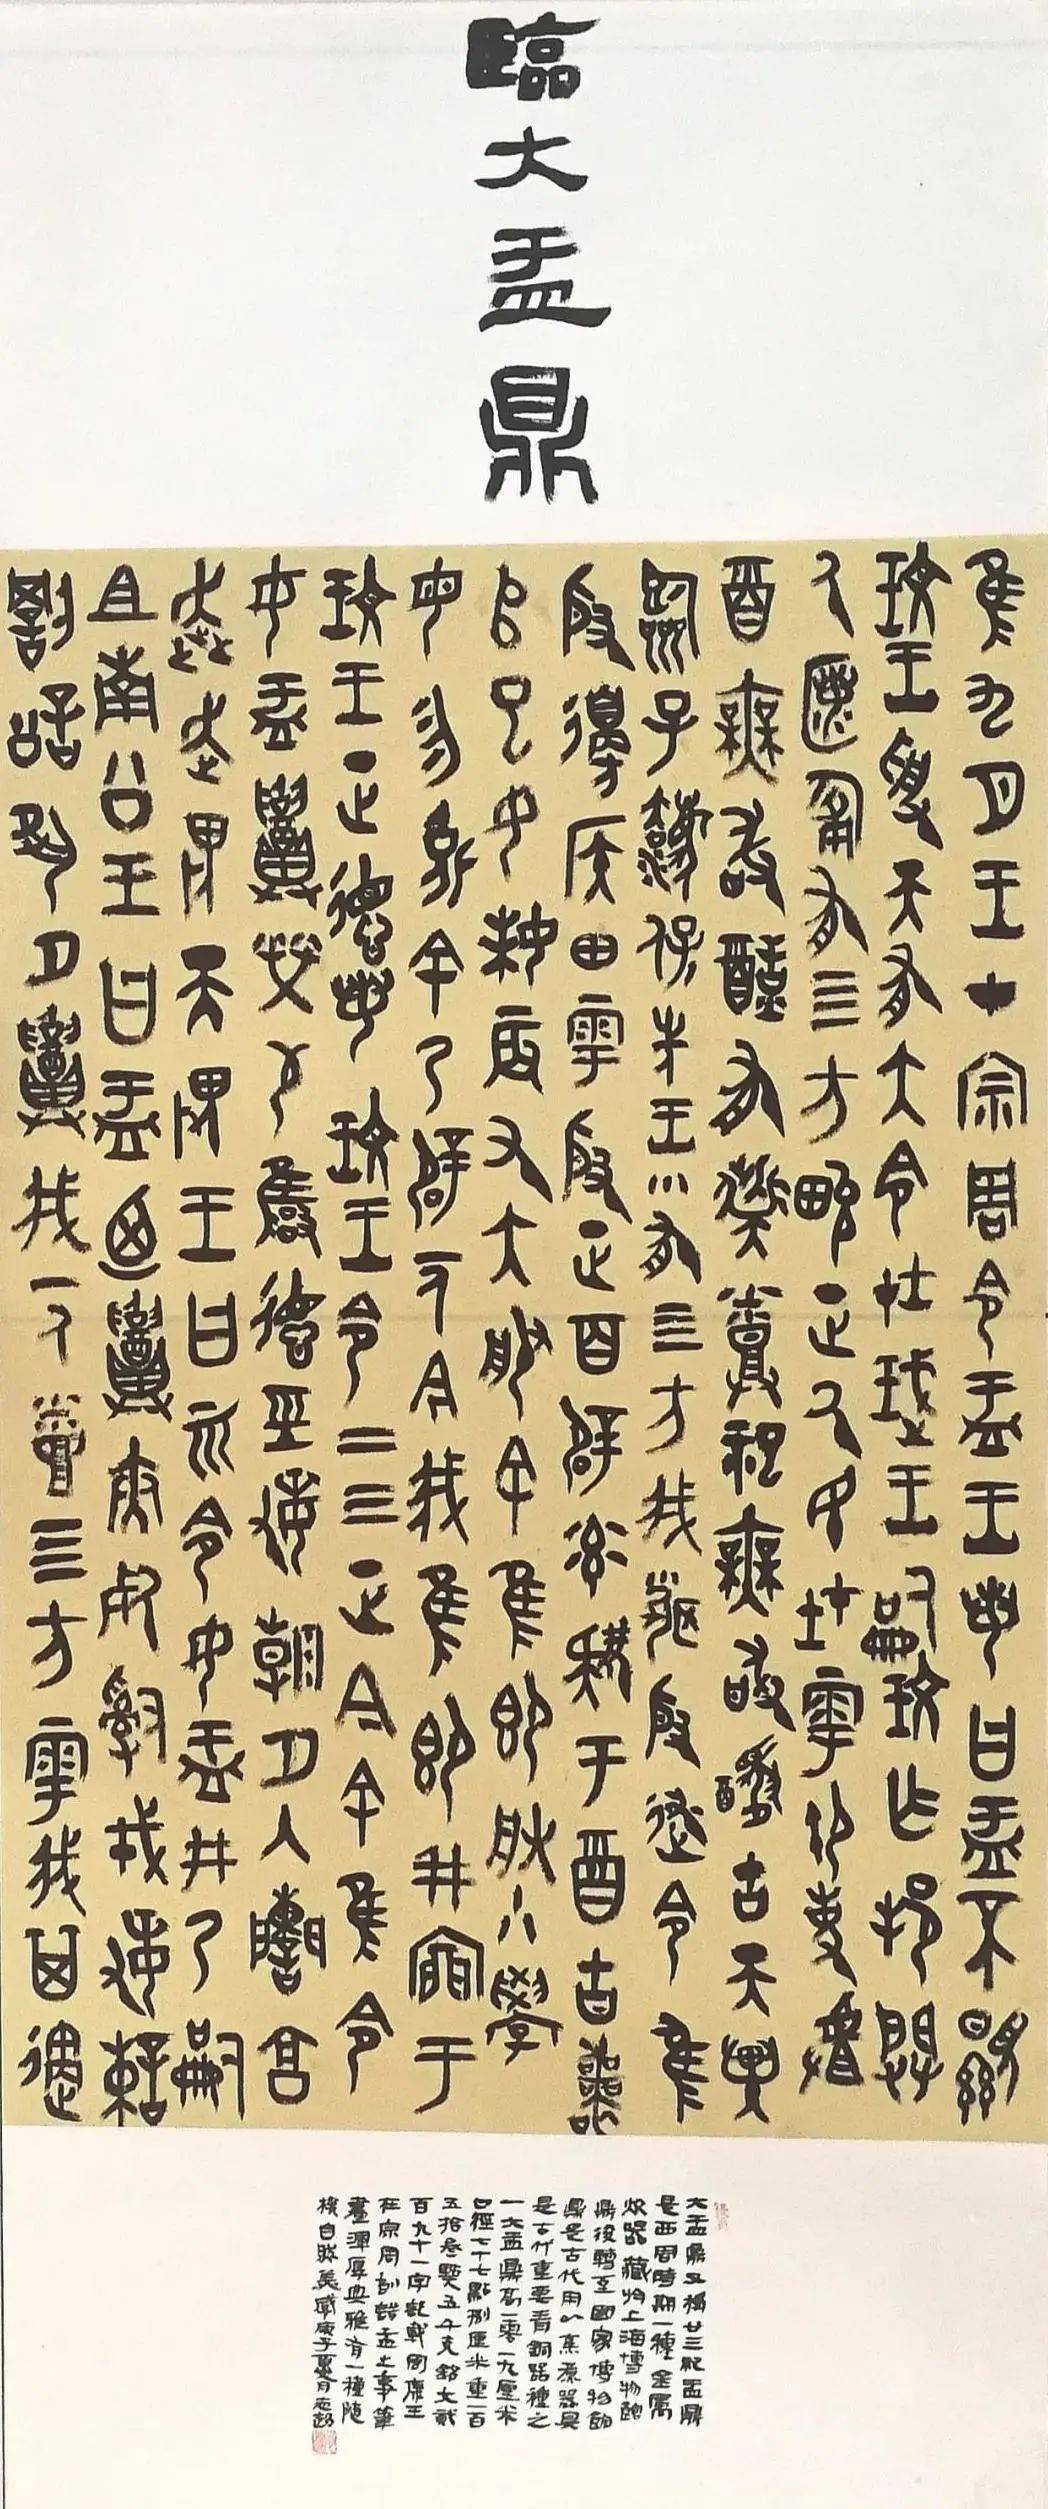 臨大盂鼎
隹九月王才宗周令盂王若曰盂不顯
玟王受天有大令在珷王嗣玟乍邦闢
氒匿匍有四方畯正氒民在雩御事䖒
酉無敢酖有柴烝祀無敢醻古天異
臨子灋保先王有四方我聞殷述令隹
殷邊侯田雩殷正百辟率肄于酉古喪
𠂤巳女妹辰又大服余隹即朕小學
女勿余乃辟一人今我隹即井于
玟王正德若玟王令二三正今余隹令
女盂召榮敬雍德巠敏朝夕入諫享
奔走畏天畏王曰令女盂井乃嗣
且南公王曰盂迺召夾死司戎敏諫
罰訟夙夕召我一人烝四方雩我其遹
大盂鼎又稱廿三祀盂鼎
是西周時期一種金屬
炊器藏於上海博物館
鼎後轉至國家博物館
鼎是古代用以烹煮器具
是古代重要青銅器種之
一大盂鼎高一零一九厘米
口徑七十七點捌厘米重一百
五拾叁點五千克銘文貳
百九十一字記載周康王
在宗周訓誥盂之事筆
畫渾厚典雅有一種隨
樸自然美感庚子夏月志超